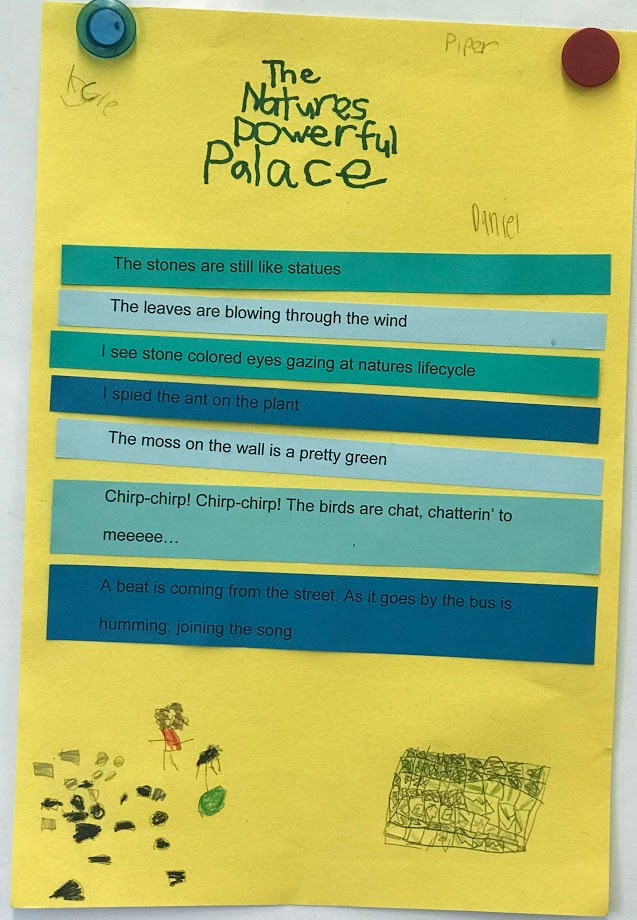 Piper
The
Natures
Powerful
Palace
Daniel
The stones are still like statues
The leaves are blowing through the wind
I see stone colored eyes gazing at natures lifecycle
I spied the ant on the plant
The moss on the wall is a pretty green
Chirp-chirp! Chirp-chirp! The birds are chat, chatterin' to
meeeee...
A beat is coming from the street. As it goes by the bus is
humming, joining the song